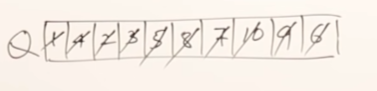 Q 1 4 2 3 5 8 7 10 9 6